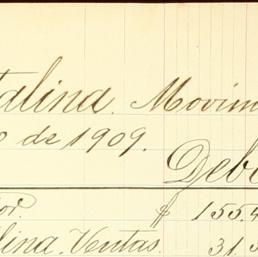 talina. Movim
o de 1909.
Deb
or. $ 155.4
lina. Ventas. 31.